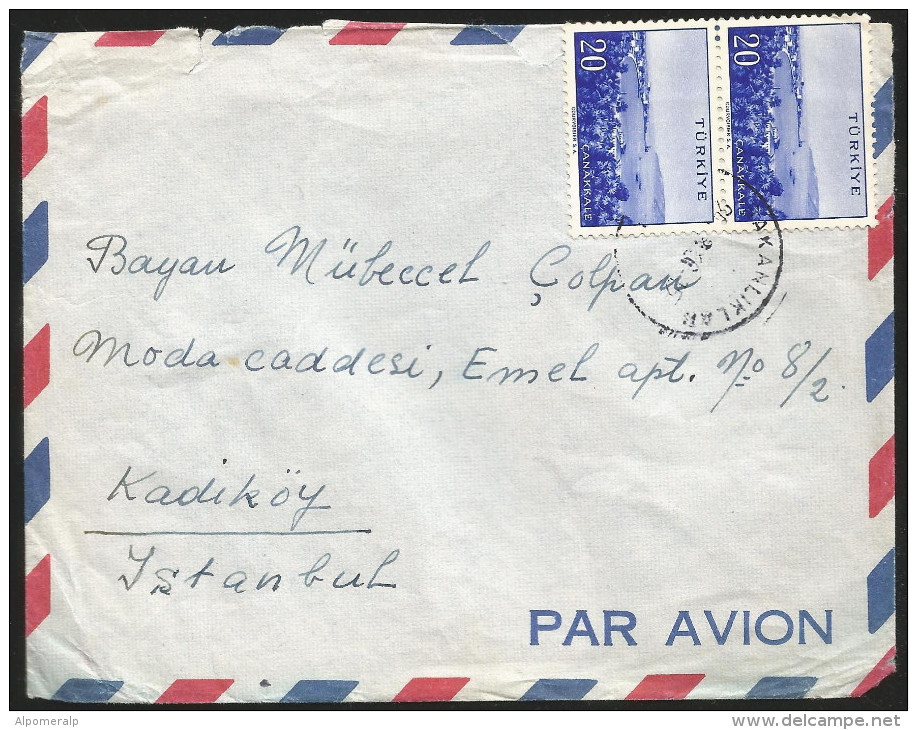 20
TÜRKİYE
ÇANAKKALE
20
TÜRKİYE
ÇANAKKALE
AKANLIKLAR
Bayan Mübeccel Çolpan
Moda caddesi, Emel apt. No 8/2.
Kadiköy
Istanbul
PAR AVION
Alpomeralp
www.delcampe.net